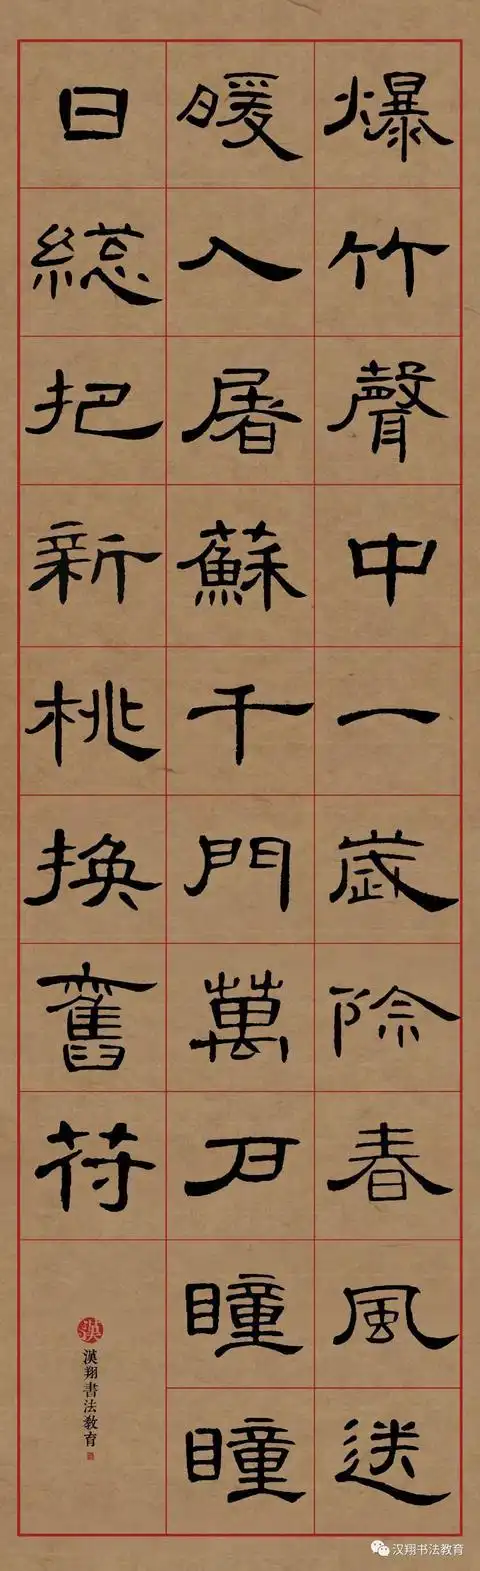 爆竹聲中一歲除春風送
暖入屠蘇千門萬戶瞳瞳
日總把新桃換舊符
漢
漢翔書法教育
汉翔书法教育